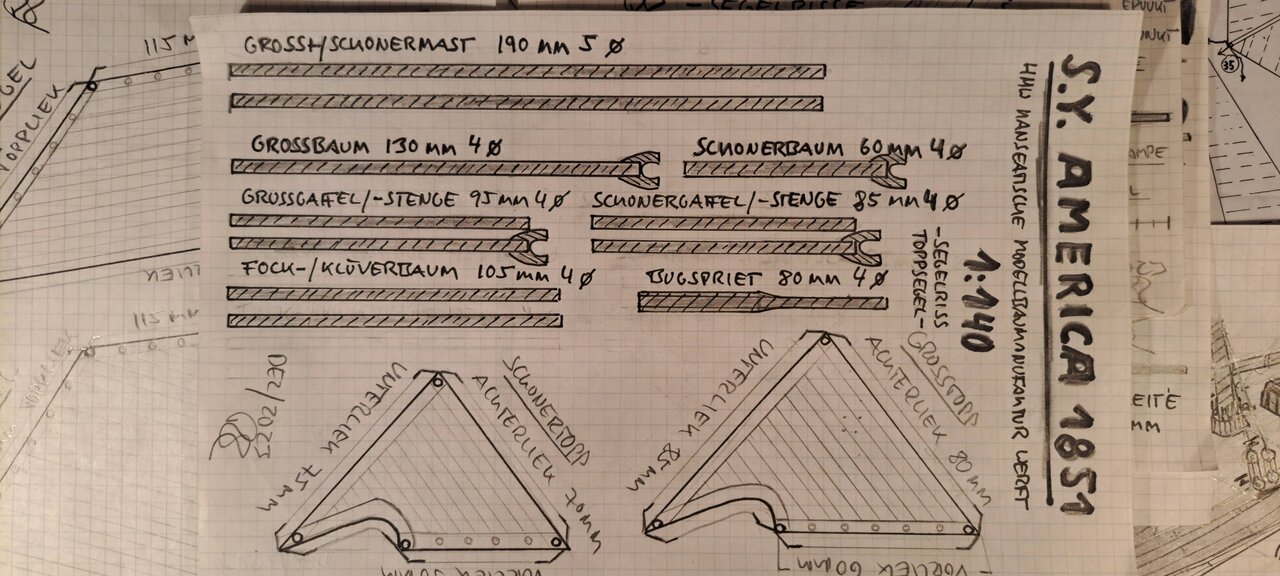 GROSS-/SCHONERMAST 190 MM 5 Ø
GROSSBAUM 130 MM 4 Ø
SCHONERBAUM 60 MM 4 Ø
GROSSGAFFEL/-STENGE 95 MM 4 Ø
SCHONERGAFFEL/-STENGE 85 MM 4 Ø
FOCK-/KLÜVERBAUM 105 MM 4 Ø
BUGSPRIET 80 MM 4 Ø
S.Y. AMERICA 1851
HMW HANSEATISCHE MODELLBAUMANUFAKTUR WERFT
1:140
-SEGELRISS
TOPPSEGEL-
GROSSTOPP
ACHTERLIEK 80 MM
UNTERLIEK 85 MM
VORLIEK 60 MM
SCHONERTOPP
ACHTERLIEK 70 MM
UNTERLIEK 75 MM
VORLIEK 50 MM
TOPPLIEK
115 M
115 MM
35